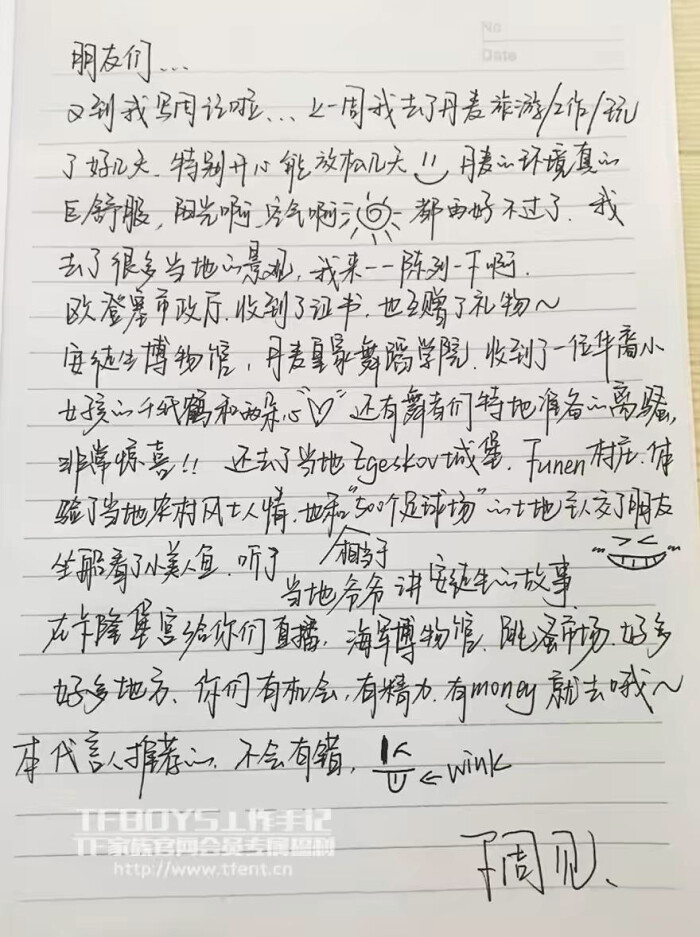 No
Date
朋友们...
又到我写周记啦... 上一周我去了丹麦旅游/工作/玩
了好几天.特别开心能放松几天 丹麦的环境真的
巨舒服,阳光啊,空气啊 都再好不过了.我
去了很多当地的景观,我来一一陈列一下啊.
欧登塞市政厅.收到了证书.也互赠了礼物~
安徒生博物馆,丹麦皇家舞蹈学院.收到了一位华裔小
女孩的千纸鹤和两朵心"♡" 还有舞者们特地准备的离骚,
非常惊喜!! 还去了当地Egeskov城堡.Funen村庄.体
验了当地农村风土人情.也和"500个足球场"的土地主人交了朋友
相当于
坐船看了小美人鱼.听了当地爷爷讲安徒生的故事.
在卡隆堡宫给你们直播,海军博物馆.跳蚤市场.好多
好多地方.你们有机会,有精力.有money就去哦~
本代言人推荐的.不会有错. ←wink
下周见、
TFBOYS工作手记
TF家族官网会员专属福利
http://www.tfent.cn